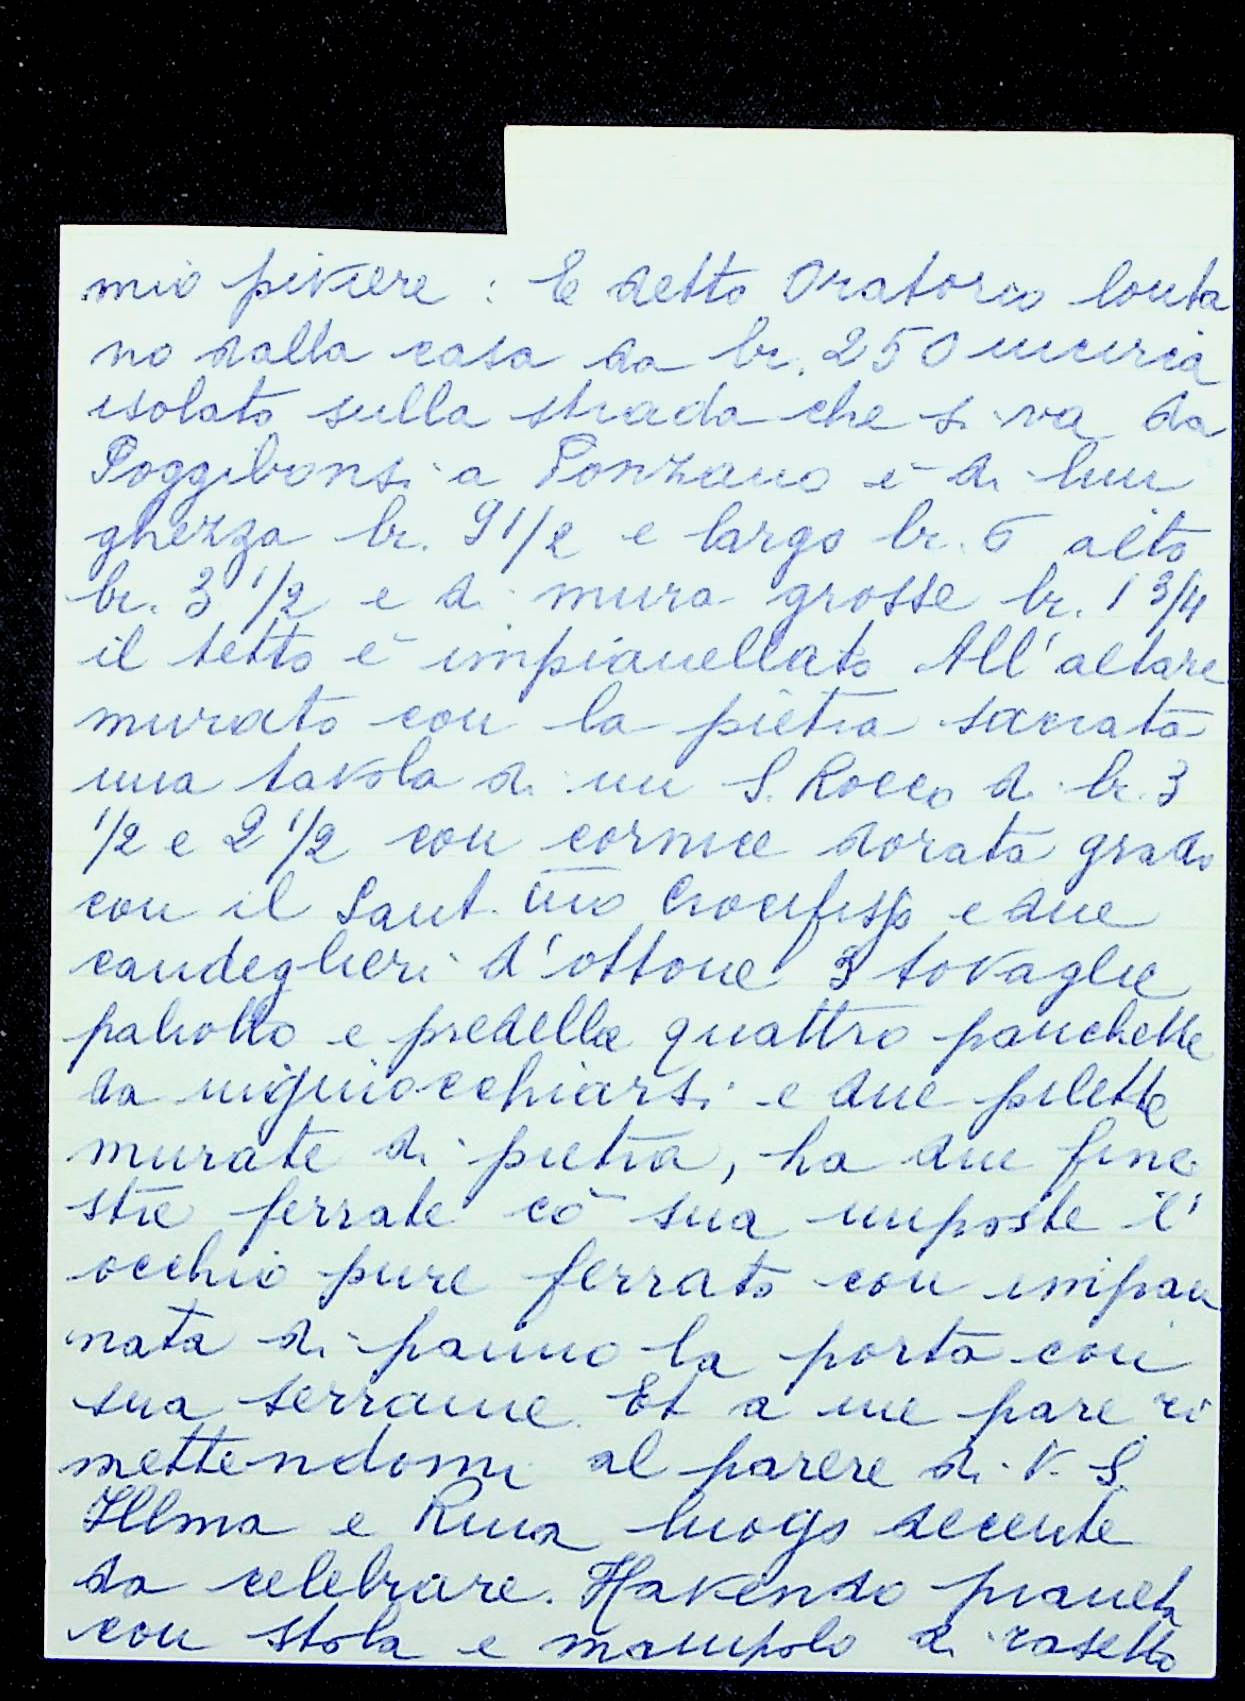 mio piviere : E detto Oratorio lonta
no dalla casa da br. 250 incircà
isolato sulla strada che si va da
Poggibonsi a Ponzano è di lun
ghezza br. 9 1/2 e largo br. 6 alto
br. 3 1/2 e di mura grosse br. 1 3/4
il tetto è impianellato All'altare
murato con la pietra sacrata
una tavola di un S. Rocco di br. 3
1/2 e 2 1/2 con cornice dorata grado
con il Sant. mo Crocifisso e due
candeglieri d'ottone 3 tovaglie
paliotto e predella quattro panchette
da inginocchiarsi e due pilette
murate di pietra, ha due fine
stre ferrate cò sua imposte l'
occhio pure ferrato con impan
nata di panno la porta con
sua serrame. Et a me pare ri
mettendomi al parere di V. S.
Illma e Rma luogo decente
da celebrare. Havendo pianeta
con stola e manipolo di rasetto